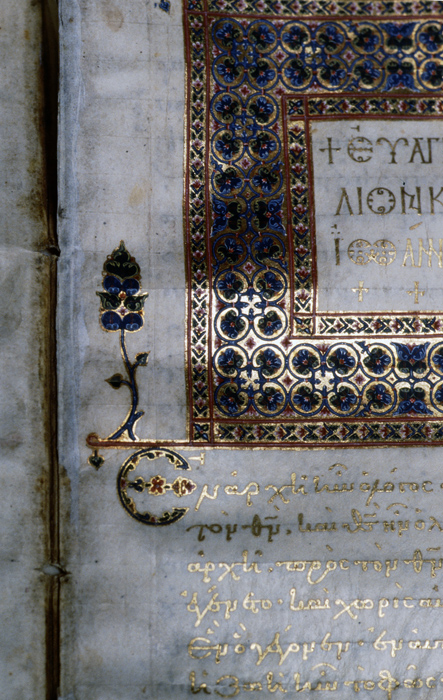 + ΕΥΑΓ
ΛΙΟΝ Κ
ΙΩΑΝΝ
+ +
Ἐν ἀρχῆ ἦν ὁ λόγος
τὸν θν, καὶ θς ἦν ὁ λ
ἀρχῆ · πρὸς τὸν θν
ἐγένετο · καὶ χωρὶς α
ἓν ὃ γέγονεν · ἐν αυ
ἡ ζωὴ ἦν τὸ φῶς